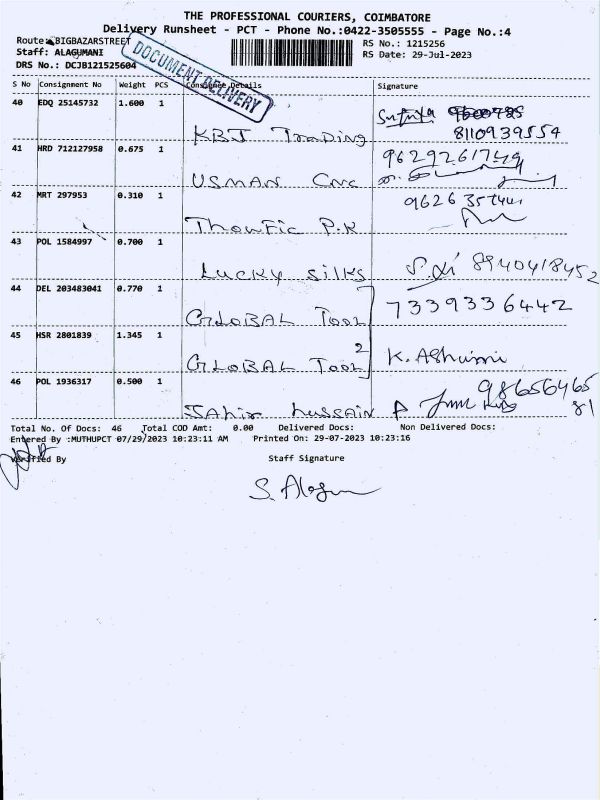 THE PROFESSIONAL COURIERS, COIMBATORE
Delivery Runsheet - PCT - Phone No.:0422-3505555 - Page No.:4
Route: BIGBAZARSTREET
RS No.: 1215256
Staff: ALAGUMANI
RS Date: 29-Jul-2023
DRS No.: DCJB121525604
DOCUMENT DELIVERY
S No Consignment No Weight PCS Consignee Details Signature
40 EDQ 25145732 1.600 1
KBJ Trading 8110939554
41 HRD 712127958 0.675 1
USMAN CNC
42 MRT 297953 0.310 1
Thowfic P.K
43 POL 1584997 0.700 1
Lucky silks 8940418452
44 DEL 203483041 0.770 1
GLOBAL Tool 7339336442
45 HSR 2801839 1.345 1
GLOBAL Tool 2 K. Ashwini
46 POL 1936317 0.500 1
Jahir hussain P 9865646581
Total No. Of Docs: 46 Total COD Amt: 0.00 Delivered Docs: Non Delivered Docs:
Entered By :MUTHUPCT 07/29/2023 10:23:11 AM Printed On: 29-07-2023 10:23:16
Verified By Staff Signature